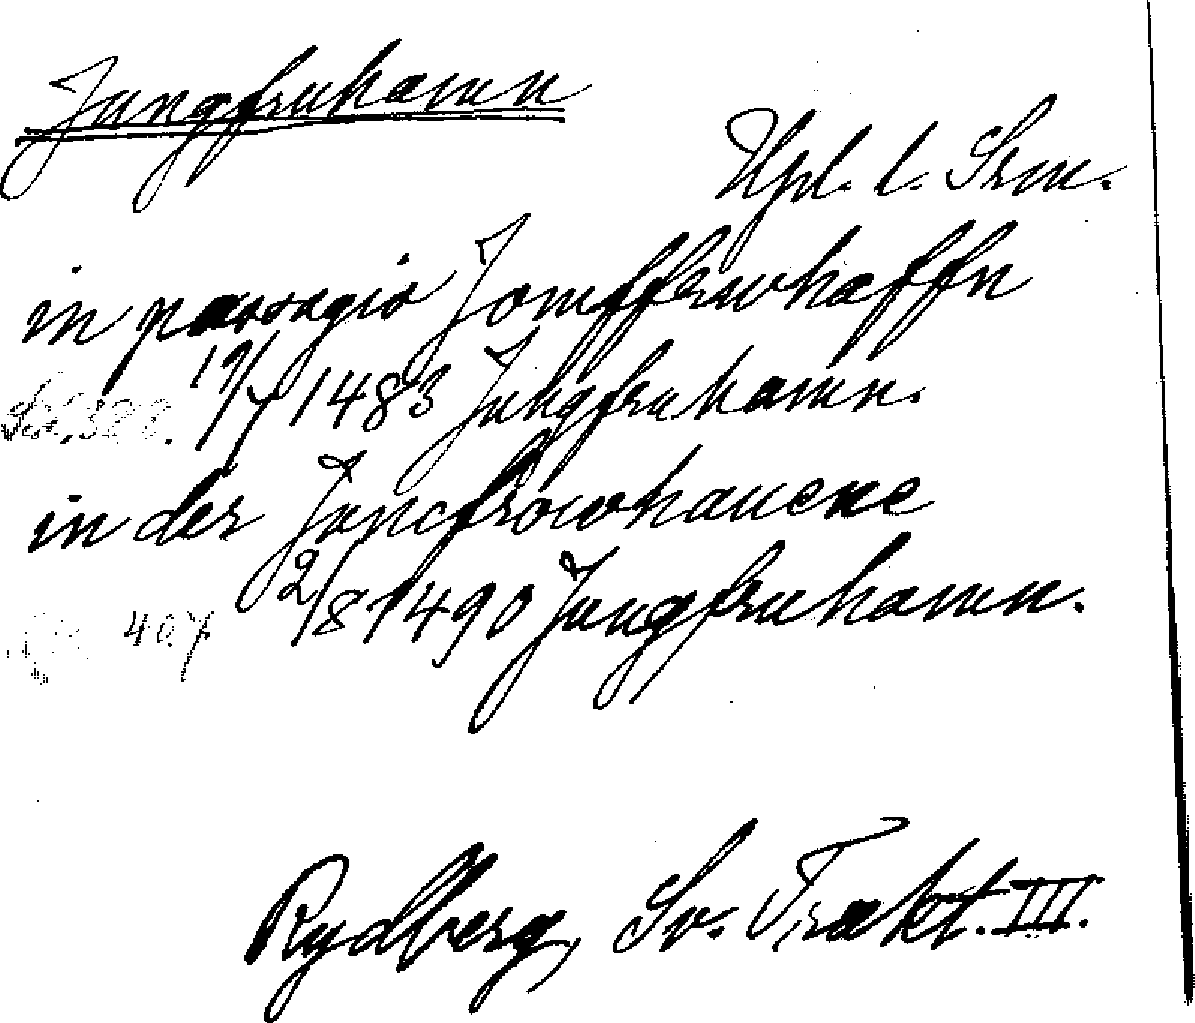 Jungfruhamn
Upl. l. Srm.
in passagio Jomffrwhaffn
19/7 1483 Jungfruhamn.
in der Juncfrowhauene
407 2/8 1490 Jungfruhamn.
Rydberg, Sv. Trakt. III.